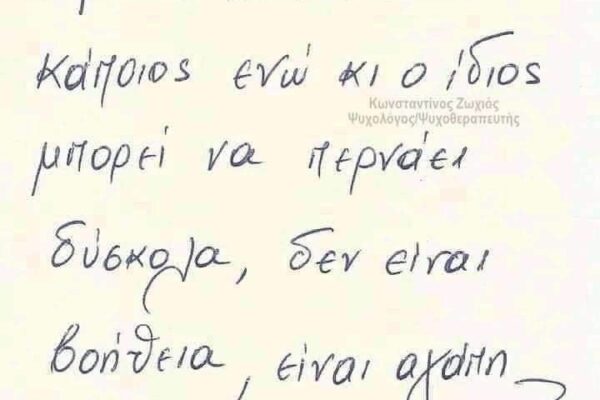 κάποιος ενώ κι ο ίδιος
Κωνσταντίνος Ζωχιός
Ψυχολόγος/Ψυχοθεραπευτής
μπορεί να περνάει
δύσκολα, δεν είναι
βοήθεια, είναι αγάπη